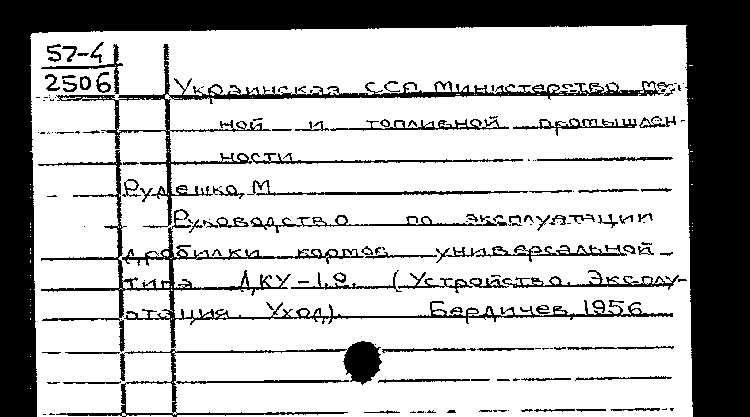 57-4
2506
Украинская ССР Министерство мест-
ной и топливной промышлен-
ности
Рудешко, М
Руководство по эксплуатации
дробилки кормов универсальной
типа ДКУ-1,0. (Устройство. Эксплу-
атация. Уход). Бердичев, 1956